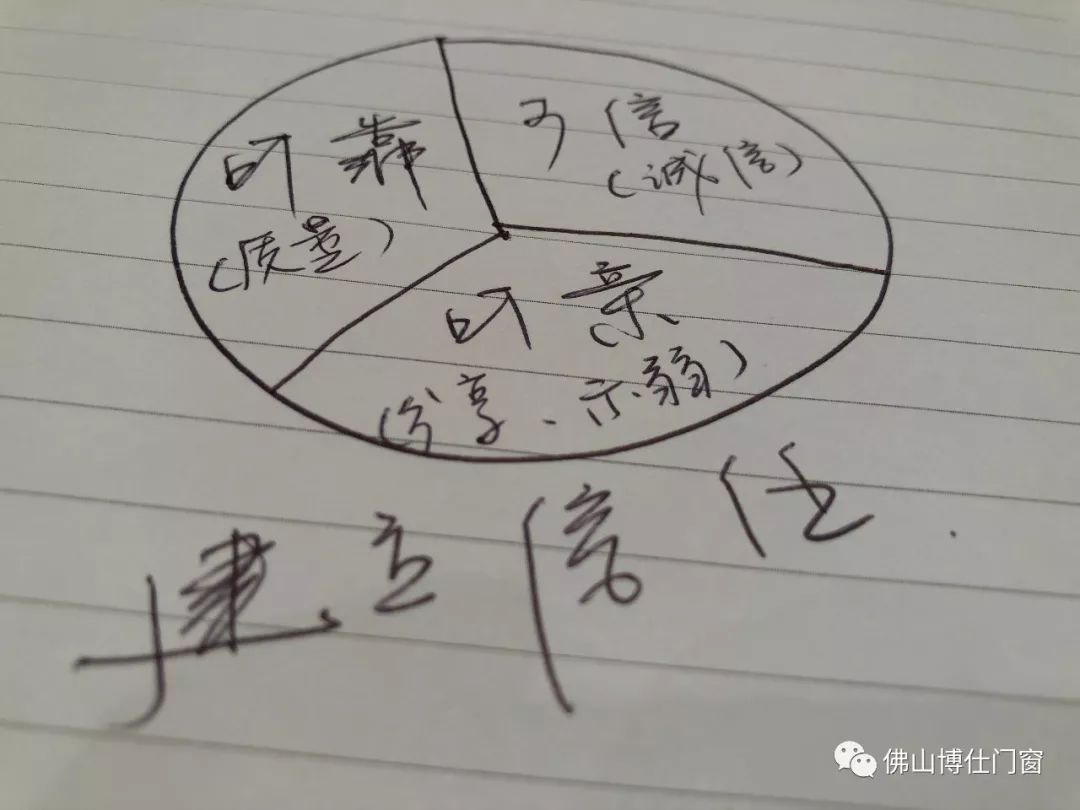 可靠
(质量)
可信
(诚信)
可亲
(分享、示弱)
建立信任.
佛山博仕门窗